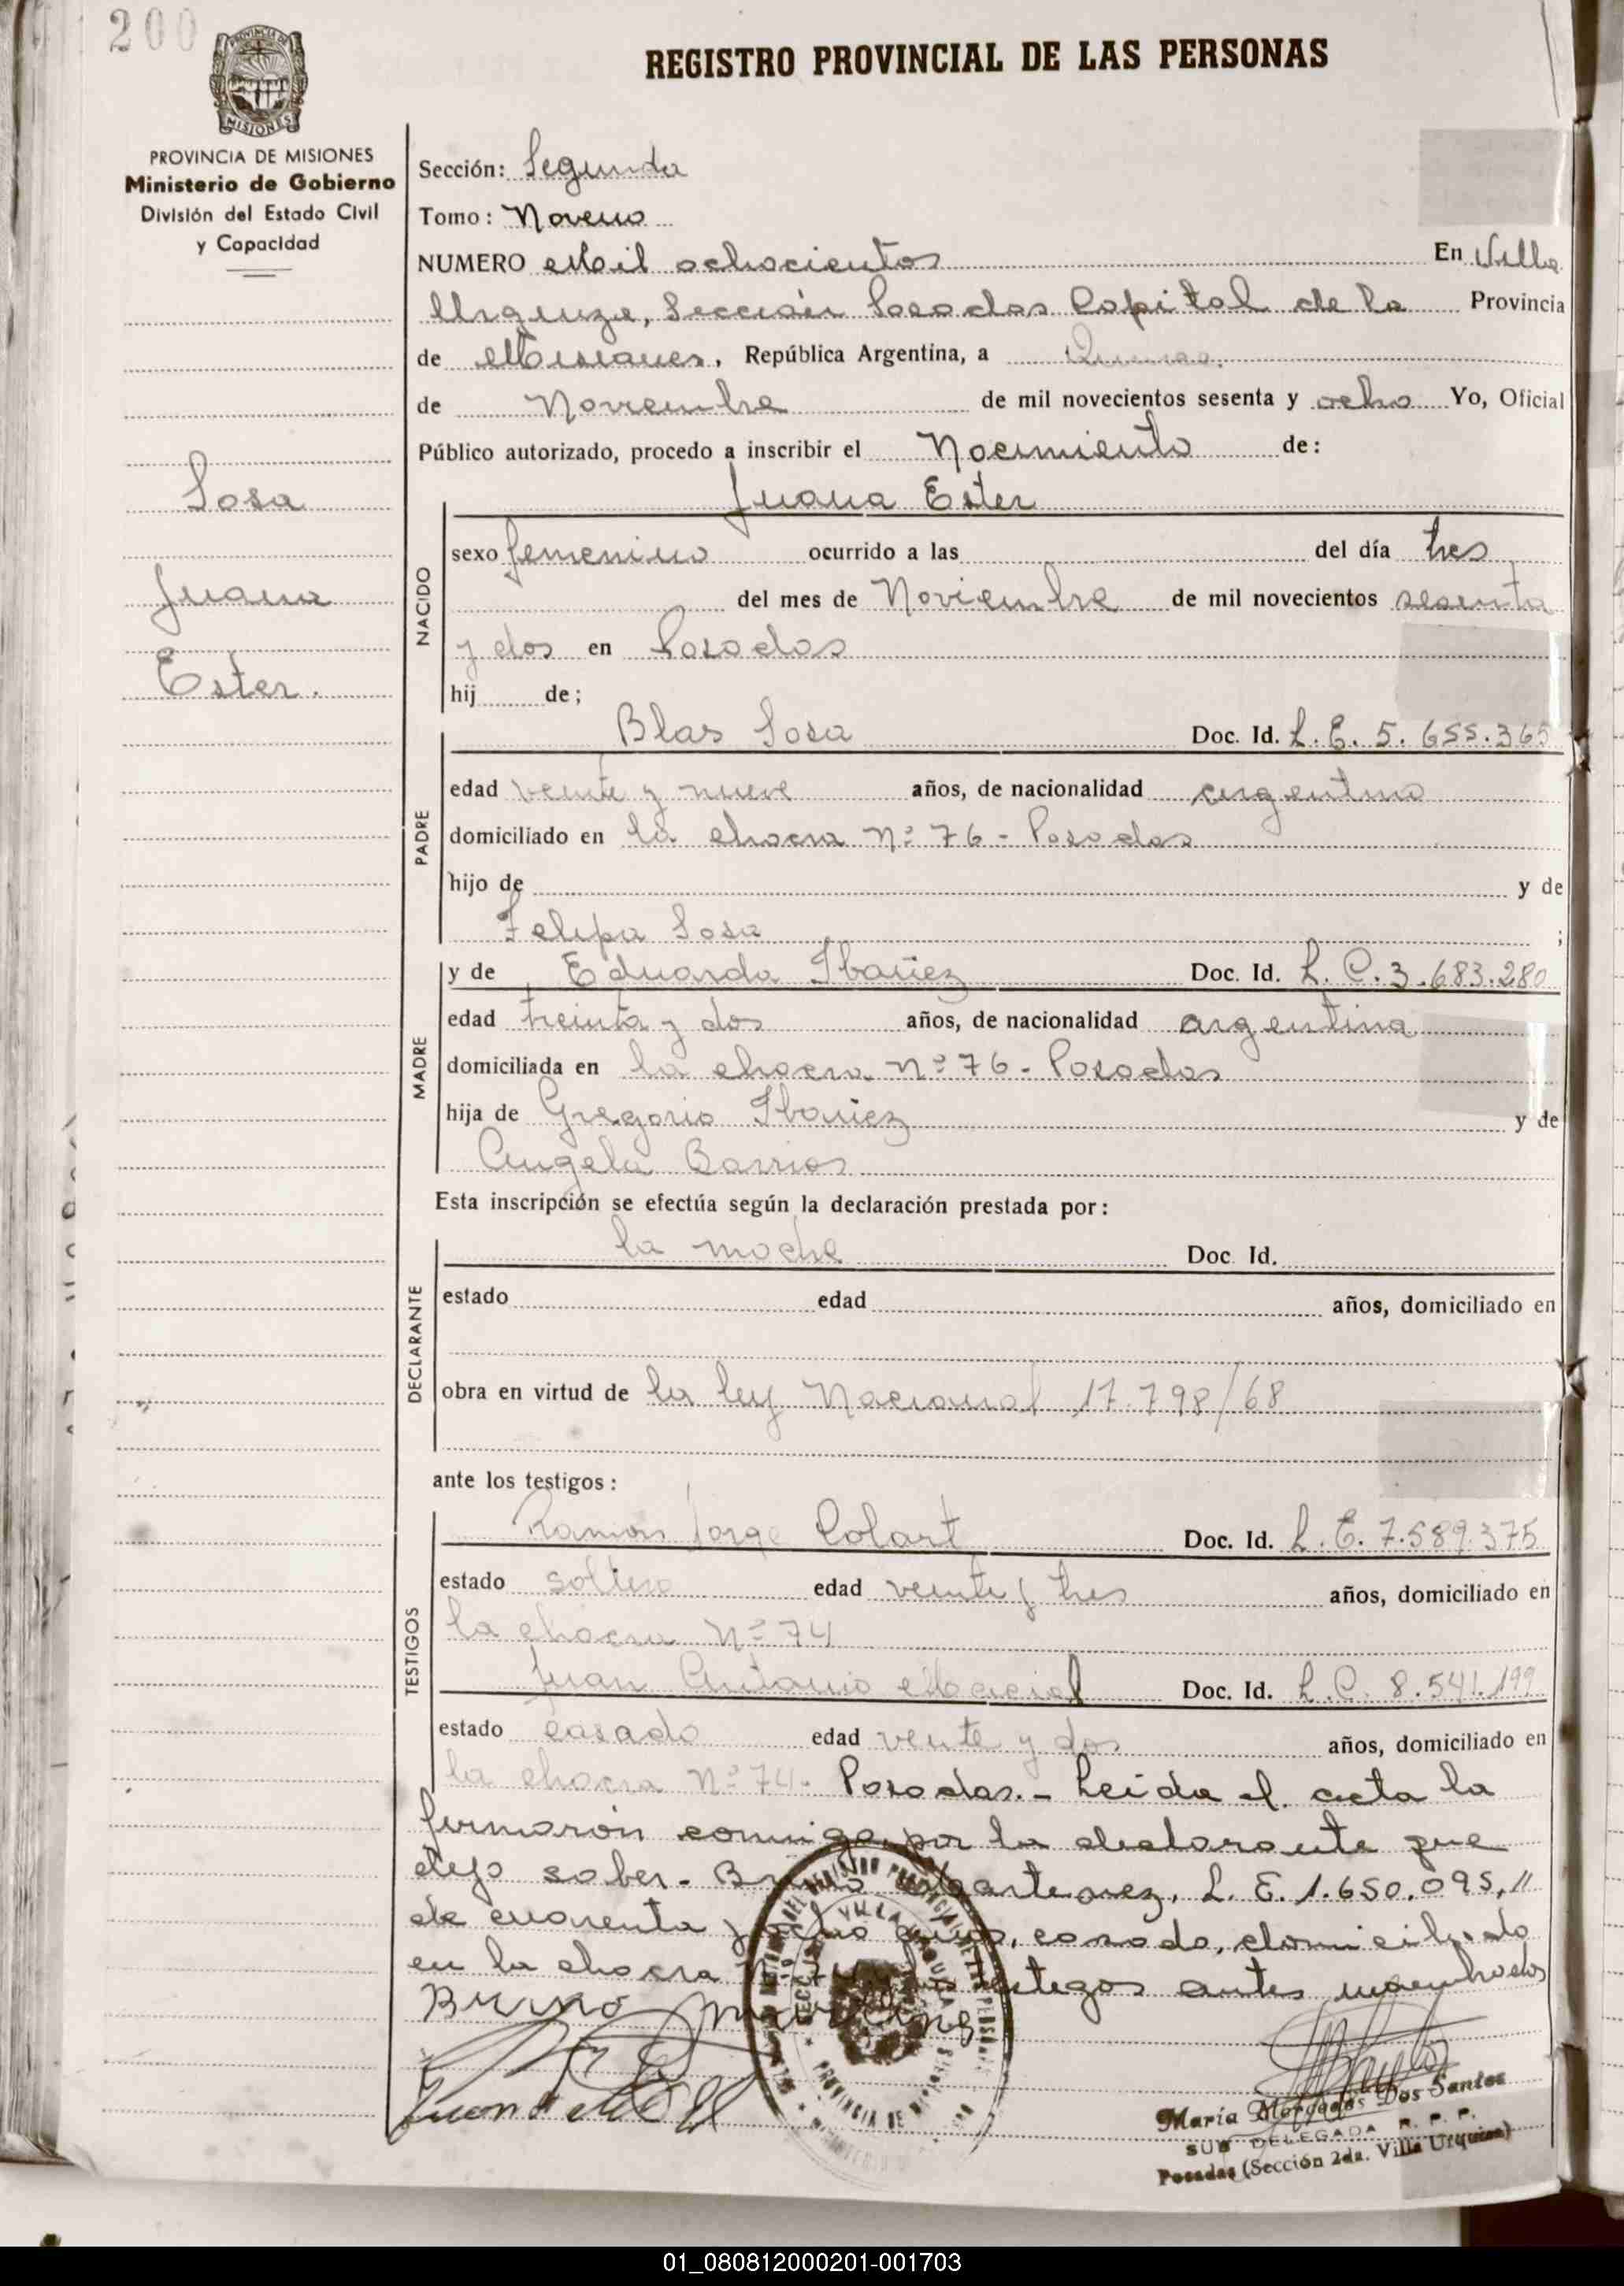 200
REGISTRO PROVINCIAL DE LAS PERSONAS
MISIONES
PROVINCIA DE MISIONES
Ministerio de Gobierno
División del Estado Civil
y Capacidad
Sosa
Juana
Ester.
Sección: Segunda
Tomo: Noveno
NUMERO Mil ochocientos En Villa
Urquiza, Sección Posadas Capital de la Provincia
de Misiones, República Argentina, a Quince
de Noviembre de mil novecientos sesenta y ocho Yo, Oficial
Público autorizado, procedo a inscribir el Nacimiento de:
Juana Ester
NACIDO
sexo femenino ocurrido a las del día tres
del mes de Noviembre de mil novecientos sesenta
y dos en Posadas
hij de;
PADRE
Blas Sosa Doc. Id. L. E. 5. 655.365
edad veinte y nueve años, de nacionalidad argentino
domiciliado en la chacra Nº 76 - Posadas
hijo de y de
Felipa Sosa ;
MADRE
y de Eduarda Ibañez Doc. Id. L. C. 3.683.280
edad treinta y dos años, de nacionalidad argentina
domiciliada en la chacra Nº 76 - Posadas
hija de Gregorio Ibañez y de
Angela Barrios
Esta inscripción se efectúa según la declaración prestada por:
DECLARANTE
la madre Doc. Id.
estado edad años, domiciliado en
obra en virtud de la ley Nacional 17.798/68
ante los testigos:
TESTIGOS
Ramon Jorge Colart Doc. Id. L. E. 7.589.375
estado soltero edad veinte y tres años, domiciliado en
la chacra Nº 74
Juan Antonio Maciel Doc. Id. L. C. 8.541.199
estado casado edad vente y dos años, domiciliado en
la chacra Nº 74. Posadas. - Leida el acta la
firmaron conmigo, por la declarante que
dejo saber. - Bruno Martinez, L. E. 1.650.095, "
de cuarenta y ocho años, casado, domiciliado
en la chacra testigos antes nombrados
Bruno Martinez
María Morgadas Dos Santos
SUB DELEGADA R. P. P.
Posadas (Sección 2da. Villa Urquiza)
01_080812000201-001703